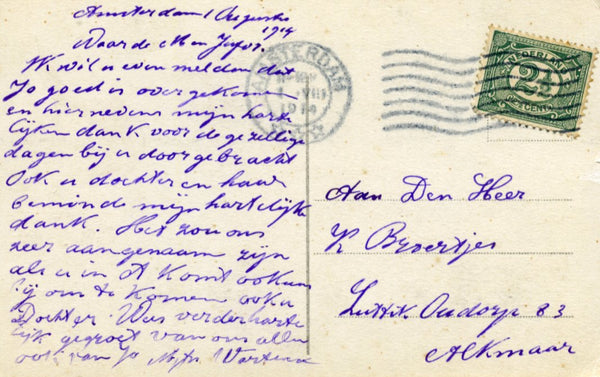 Amsterdam 1 Augustus
1914
Waarde Men
Ik wil u even melden dat
Jo goed is over gekomen
en hiernevens mijn harte
lijken dank voor de gezellige
dagen bij u doorgebracht
Ook u dochter en haar
beminde mijn hartelijke
dank. Het zou ons
zeer aangenaam zijn
als u in A komt ook eens
bij ons te komen ook u
Dochter. Wees verder harte
lijk gegroet van ons allen
ook van Jo
AMSTERDAM
NEDERLAND
2½
CENT
Aan Den Heer
K Broertjes
Luttik Oudorp 83
Alkmaar